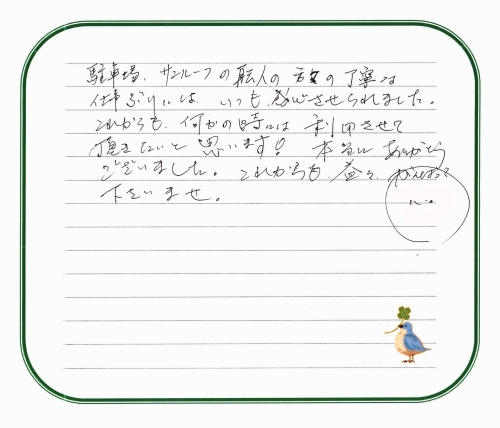 駐車場、サンルーフの職人の方々の丁寧な
仕事ぶりには、いつも、感心させられました。
これからも、何かの時には利用させて
頂きたいと思います！本当にありがとう
ございました。これからも、益々、がんばって
下さいませ。